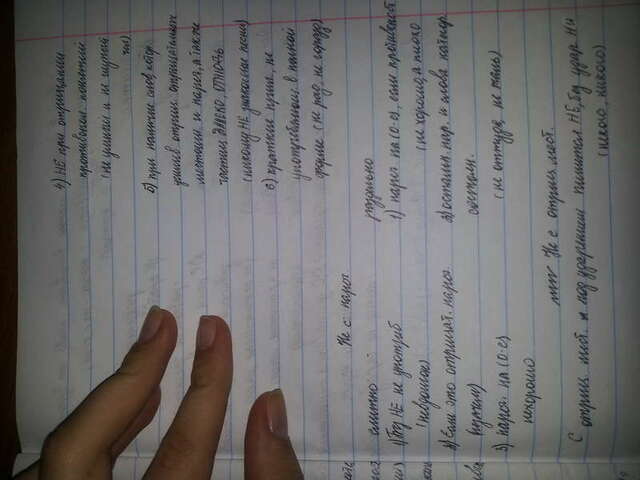 4) НЕ при отрицании
противопол. понятий
(не умный и не глупый
чел)
5) при наличие слов, котор
усилив отриц. отрицательн
местоим. и нареч, а также
частиц ДАЛЕКО, ОТНЮДЬ
(никому НЕ знакомые песни)
6) краткие прил., не
употребляющ. в полной
форме (не рад, не горазд)
Не с нареч
слитно
раздельно
1) Без НЕ не употреб
1) нареч на (о-е), если противопост
(не хорошо, а плохо
2) Если это отрицат. нареч.
2) остальн. нар. и слова категор.
(незачем)
состоян.
3) нареч. на (о-е)
(не оттуда, не жаль)
нехорошо
Не с отриц мест.
С отриц мест. и под ударением пишется НЕ, без удар Ни
(некого, никого)